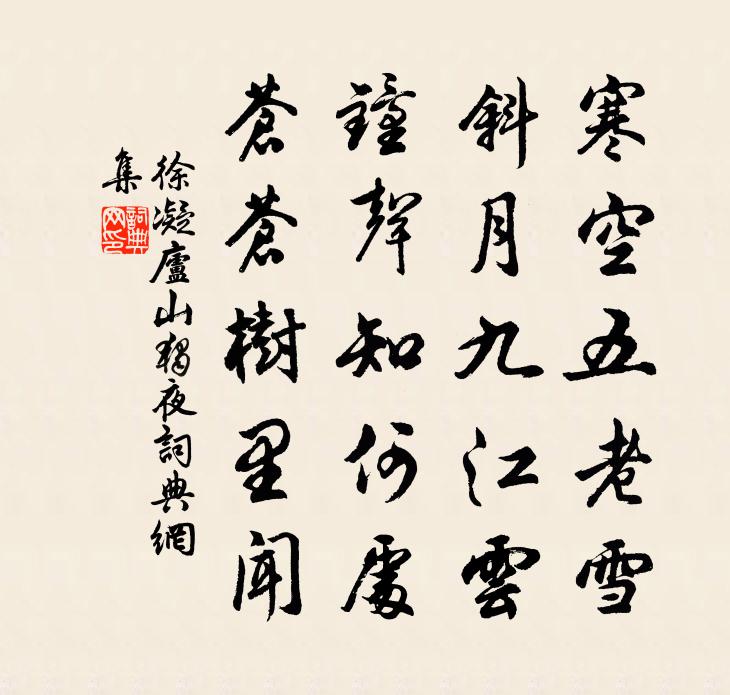 寒空五老雪
斜月九江雲
鐘聲知何處
蒼蒼樹里聞
徐凝廬山獨夜詞典網
集
詞典網印